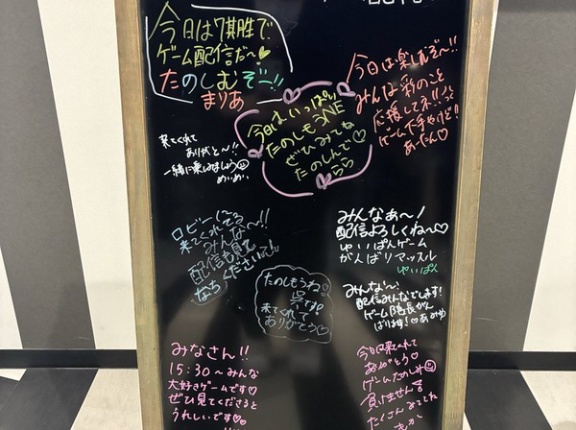 今日は7期生で
ゲーム配信だ〜♡
たのしむぞー!!
まりあ
今日は楽しむぞ〜!!
みんな彩のこと
応援してネ!!
ゲーム下手やけど!
あーたん♡
今日はいっぱい
たのしもうNE
ぜひみてね
たのしんで♡
らら
来てくれて
ありがと〜!!
一緒に楽しみましょう
めいめい
ロビーに
来てくれてる
みんな〜!!
配信も見て
くださいね
みんなぁ〜!
配信よろしくね〜♡
ゆいぱんゲーム
がんばリマッスル
ゆいぱん
たのしもうね♡
呉です
来てくれて
ありがとう♡
みんな〜、
配信みんなでします!
ゲーム隊長がん
ばります!♡あみ
みなさん!!
15:30〜みんな
大好きゲームです♡
ぜひ見てくださると
うれしいです♡
今日は来てくれて
ありがとう
ゲームたのしみ
負けません
たくさんみてね